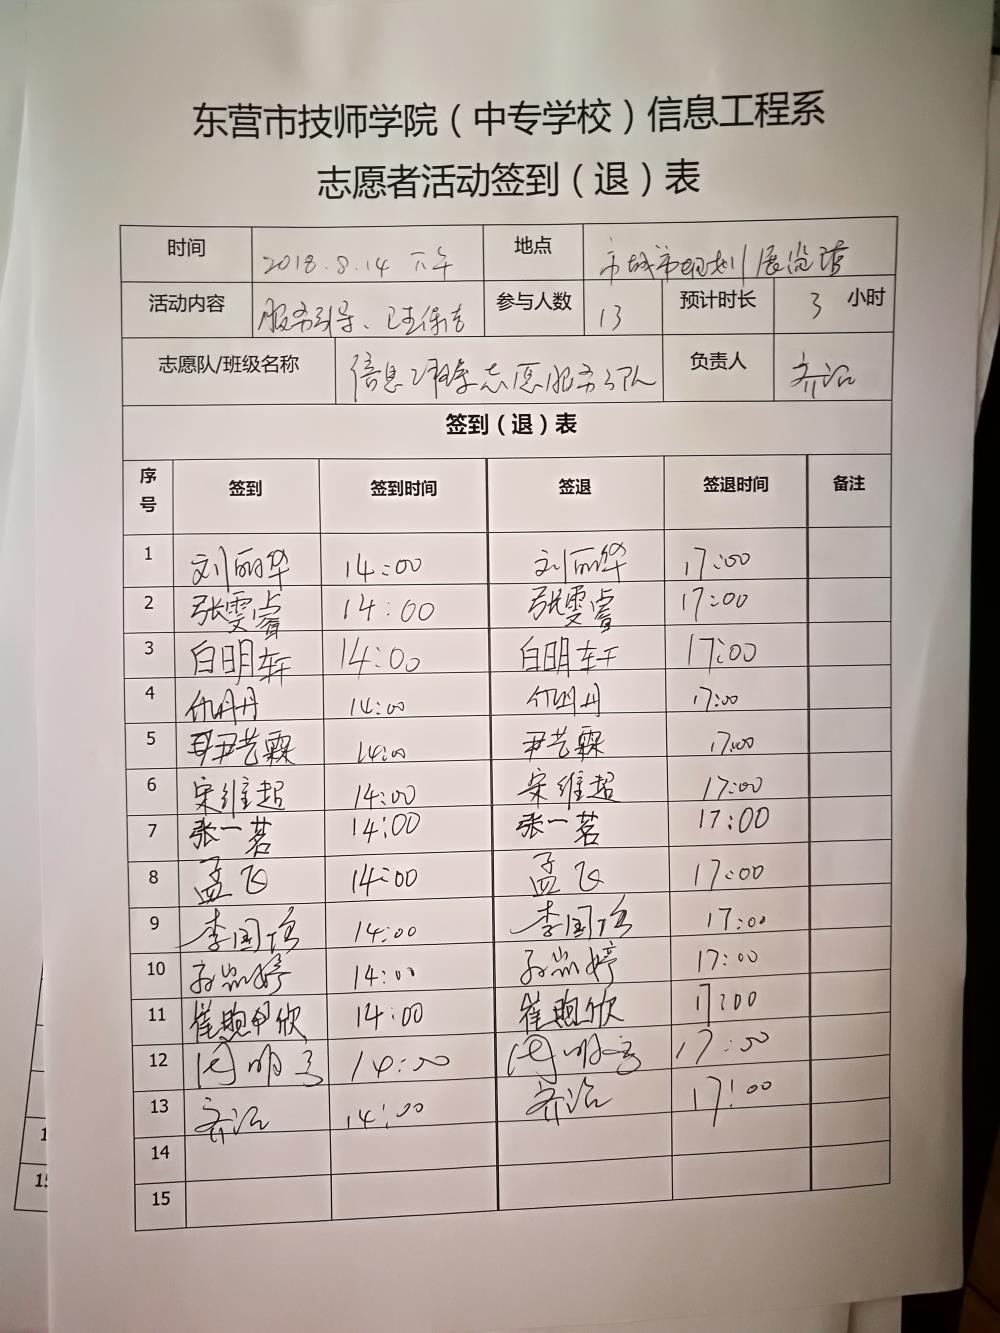 东营市技师学院（中专学校）信息工程系
志愿者活动签到（退）表
时间 2018.8.14 下午 地点 市城市规划展览馆
活动内容 服务引导、卫生保洁 参与人数 13 预计时长 3 小时
志愿队/班级名称 信息工程系志愿服务分队 负责人 齐沿
签到（退）表
序号 签到 签到时间 签退 签退时间 备注
1 刘丽华 14:00 刘丽华 17:00
2 张雯睿 14:00 张雯睿 17:00
3 白明轩 14:00 白明轩 17:00
4 仇丹丹 14:00 仇丹丹 17:00
5 尹艺霖 14:00 尹艺霖 17:00
6 宋维超 14:00 宋维超 17:00
7 张一茗 14:00 张一茗 17:00
8 孟飞 14:00 孟飞 17:00
9 李国 14:00 李国 17:00
10 孙 婷 14:00 孙 婷 17:00
11 崔 欣 14:00 崔 欣 17:00
12 周明 14:00 周明 17:00
13 齐 14:00 齐 17:00
14
15
1
15